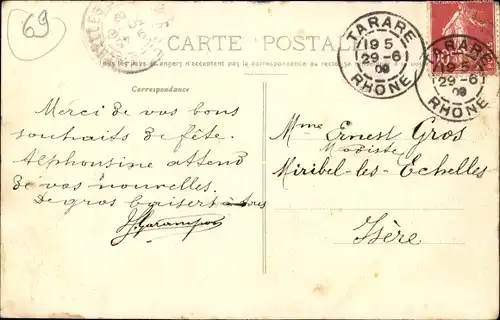 69
CARTE POSTALE
Tous les pays étrangers n'acceptent pas la correspondance au recto
Correspondance
TARARE
19 5
29-6
09
RHONE
TARARE
29-6
09
RHONE
Merci de vos bons
souhaits de fête.
Alphonsine attend
de vos nouvelles.
De gros baisers à tous
Mme Ernest Gros
Modiste
Miribel-les-Echelles
Isère